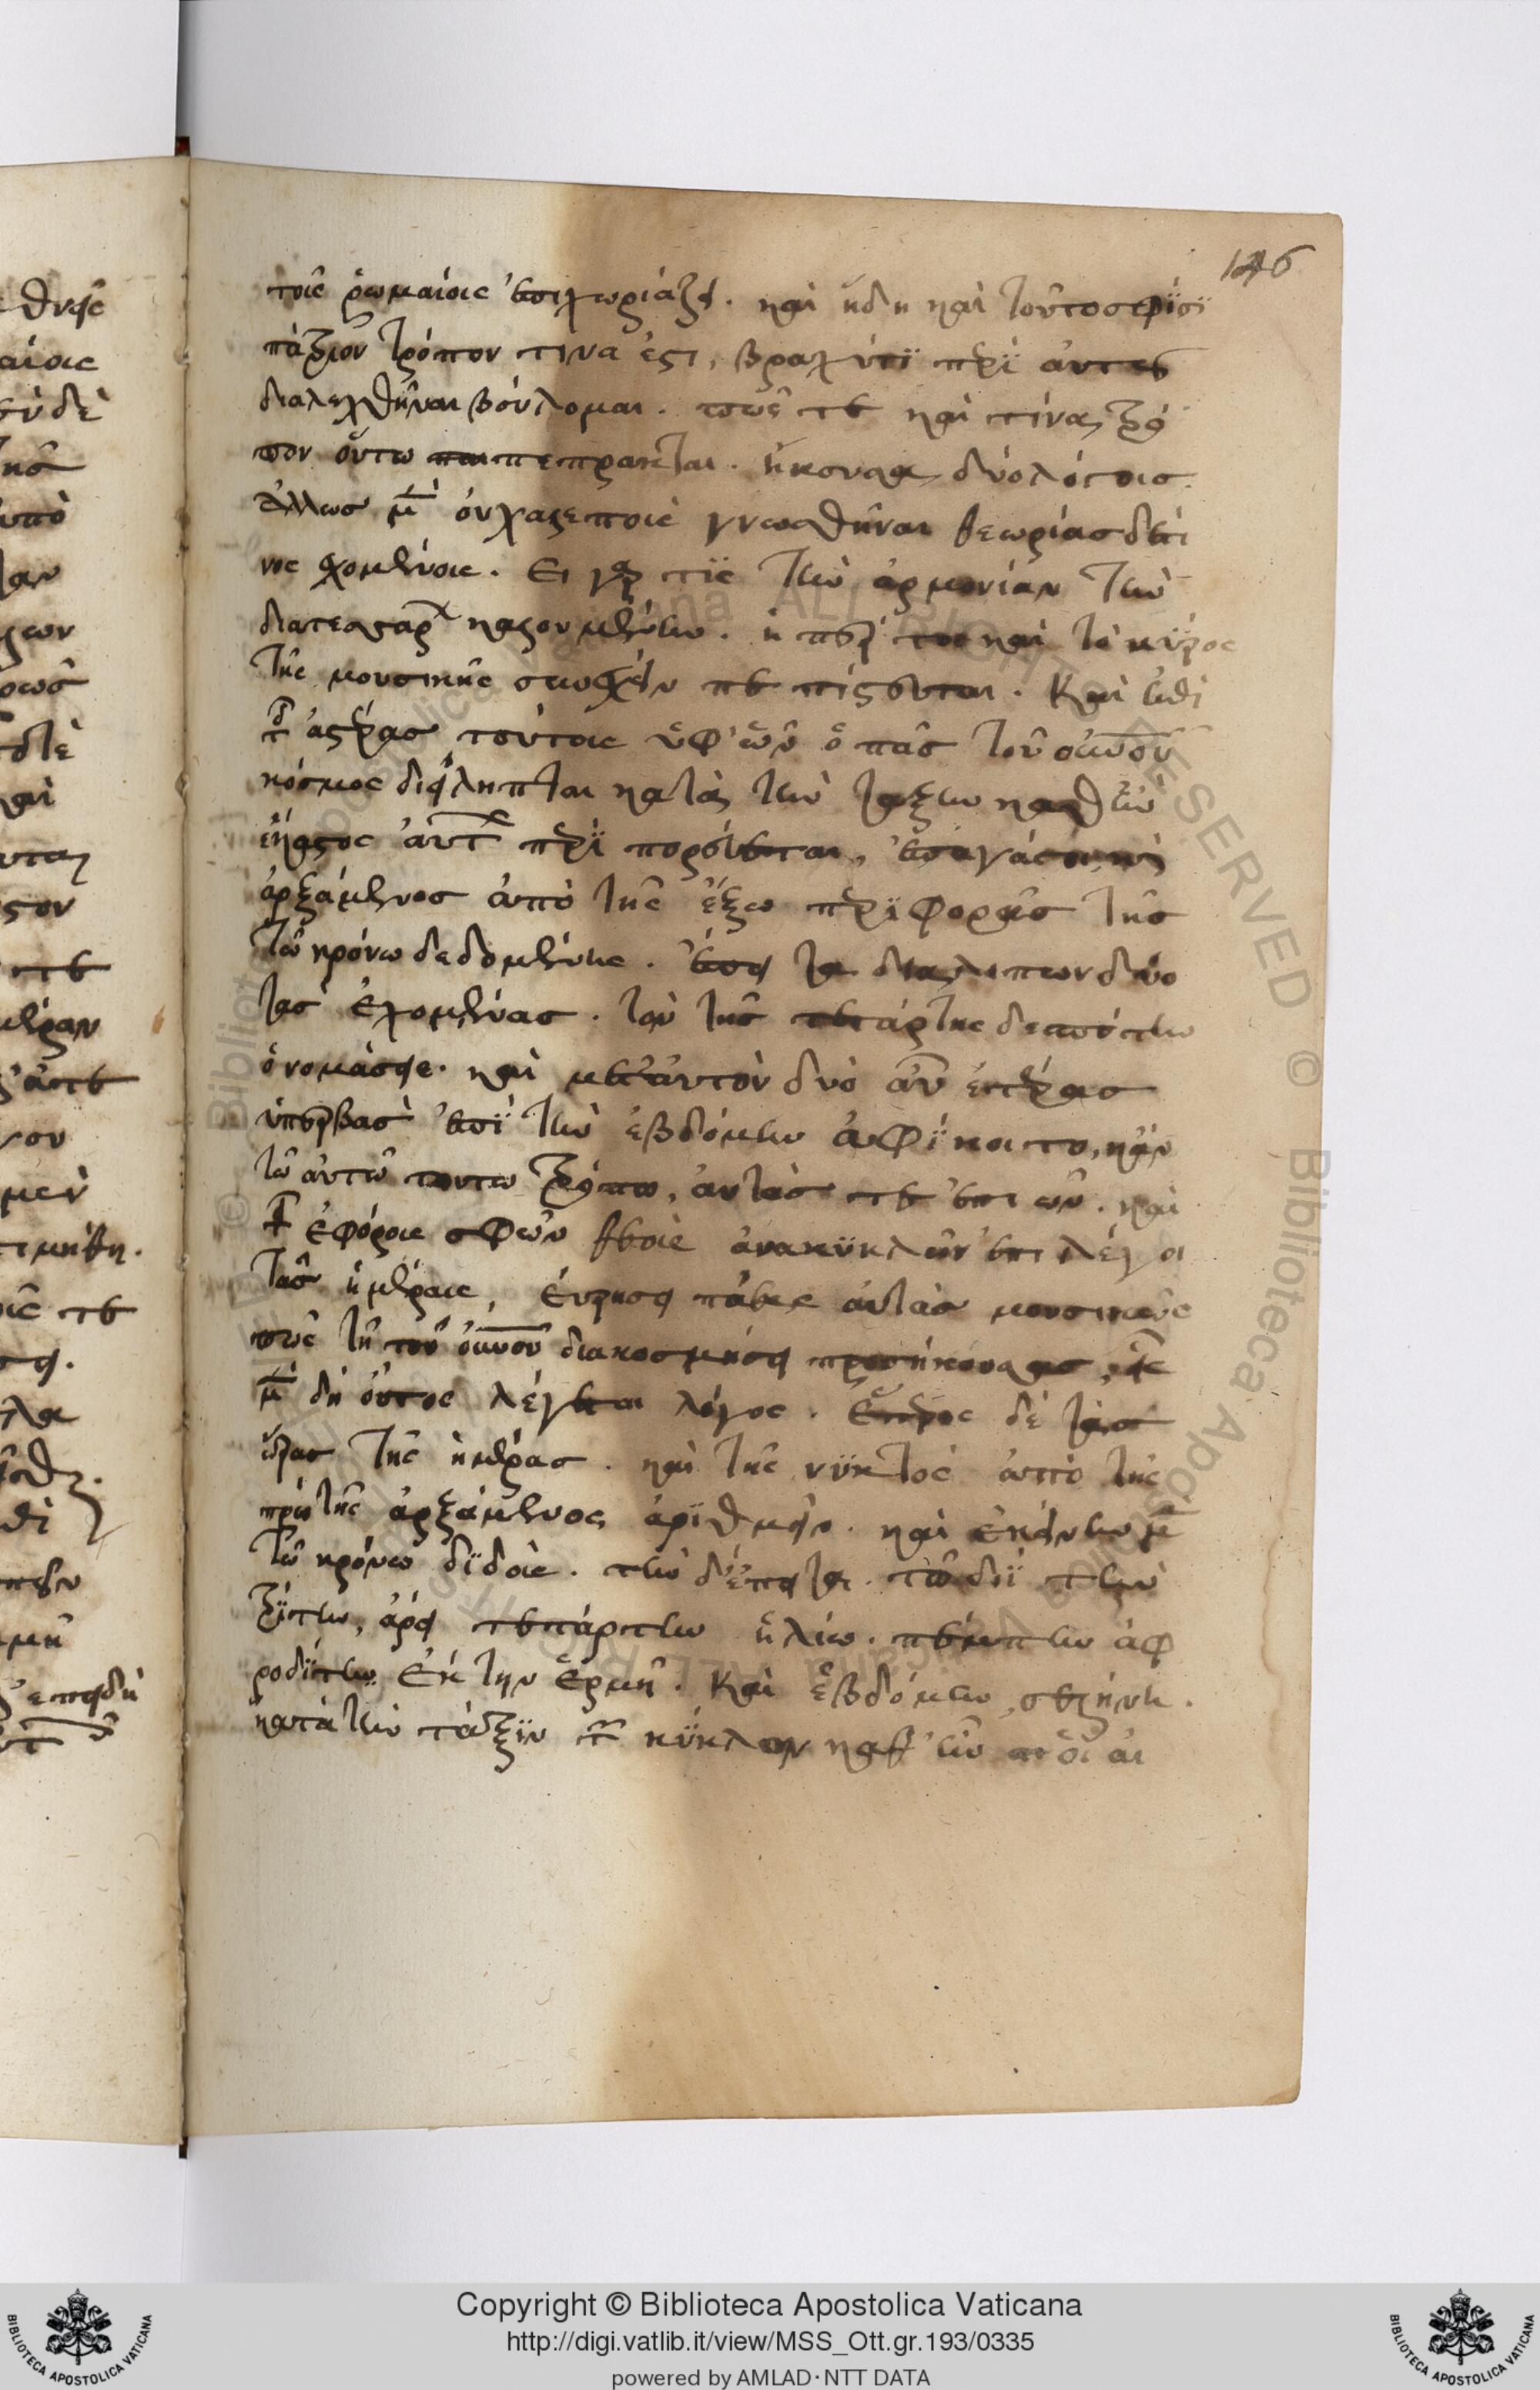 146
τοῖς ῥωμαίοις ἐπιχωριάζει. καὶ ἤδη καὶ τοῦτο σφίσι
πάτριον τρόπον τινα ἐστι, βραχύτι περὶ αὐτοῦ
διαλεχθῆναι βούλομαι. πῶς τε καὶ τίνα τρό
πον οὕτω τέτακται. ἤκουσα δύο λόγους
ἄλλως μὲν οὐ χαλεποὺς γνωσθῆναι θεωρίας δέ τι
νος ἐχομένοις. Ει γάρ τις τὴν ἁρμονίαν τὴν
διατεσσάρων καλουμένην. ἡ περ που καὶ τὸ κύρος
τῆς μουσικῆς συνέχειν πεπίστευται. Καὶ ἐπὶ
τοὺς ἀστέρας τούτοις ὑφ' ὧν ὁ πᾶς τοῦ οὐνοῦ
κόσμος διείληπται κατὰ τὴν τάξιν καθ' ἣν
ἕκαστος αὐτῶν περιπορεύεται, ἐπαγάγοι, καὶ
ἀρξάμενος ἀπὸ τῆς ἔξω περιφορᾶς τῆς
τῶ κρόνω δεδομένης. ἔπειτα διαλιπων δύο
τὰς ἐχομένας. τὸν τῆς τετάρτης δεσπότην
ὀνομάσειε. καὶ μετ' αὐτὸν δύο αὖ ἑτέρας
ὑπερβὰς ἐπὶ τὴν ἑβδόμην ἀφίκοιτο, κἀν
τῶ αὐτῶ τουτω τρόπω, αὐτάς τε ἐπιων. καὶ
τοὺς ἐφόρους σφῶν θεοὺς ἀνακυκλῶν ἐπιλέγοι
ταῖς ἡμέραις, εὑρήσει πάσας αὐτὰς μουσικῶς
πως τῆ τοῦ οὐνοῦ διακοσμήσει προσηκούσας, εἷς
μὲν δὴ οὗτος λέγεται λόγος. Ἕτερος δὲ τὰς
ὥρας τῆς ἡμέρας. καὶ τῆς νυκτὸς ἀπὸ τῆς
πρώτης ἀρξάμενος ἀριθμεῖν. καὶ ἐκείνην μὲν
τῶ κρόνω διδούς. τὴν δ' ἔπειτα. τῶ διῒ τὴν
τρίτην, ἄρει τετάρτην ἡλίω. πέμπτην ἀφ
ροδίτην Ἕκτην Ἑρμῆ. Καὶ ἑβδόμην, σελήνη.
κατὰ τὴν τάξιν τῶν κύκλων καθ' ἣν οἱ αι
Copyright © Biblioteca Apostolica Vaticana
http://digi.vatlib.it/view/MSS_Ott.gr.193/0335
powered by AMLAD·NTT DATA